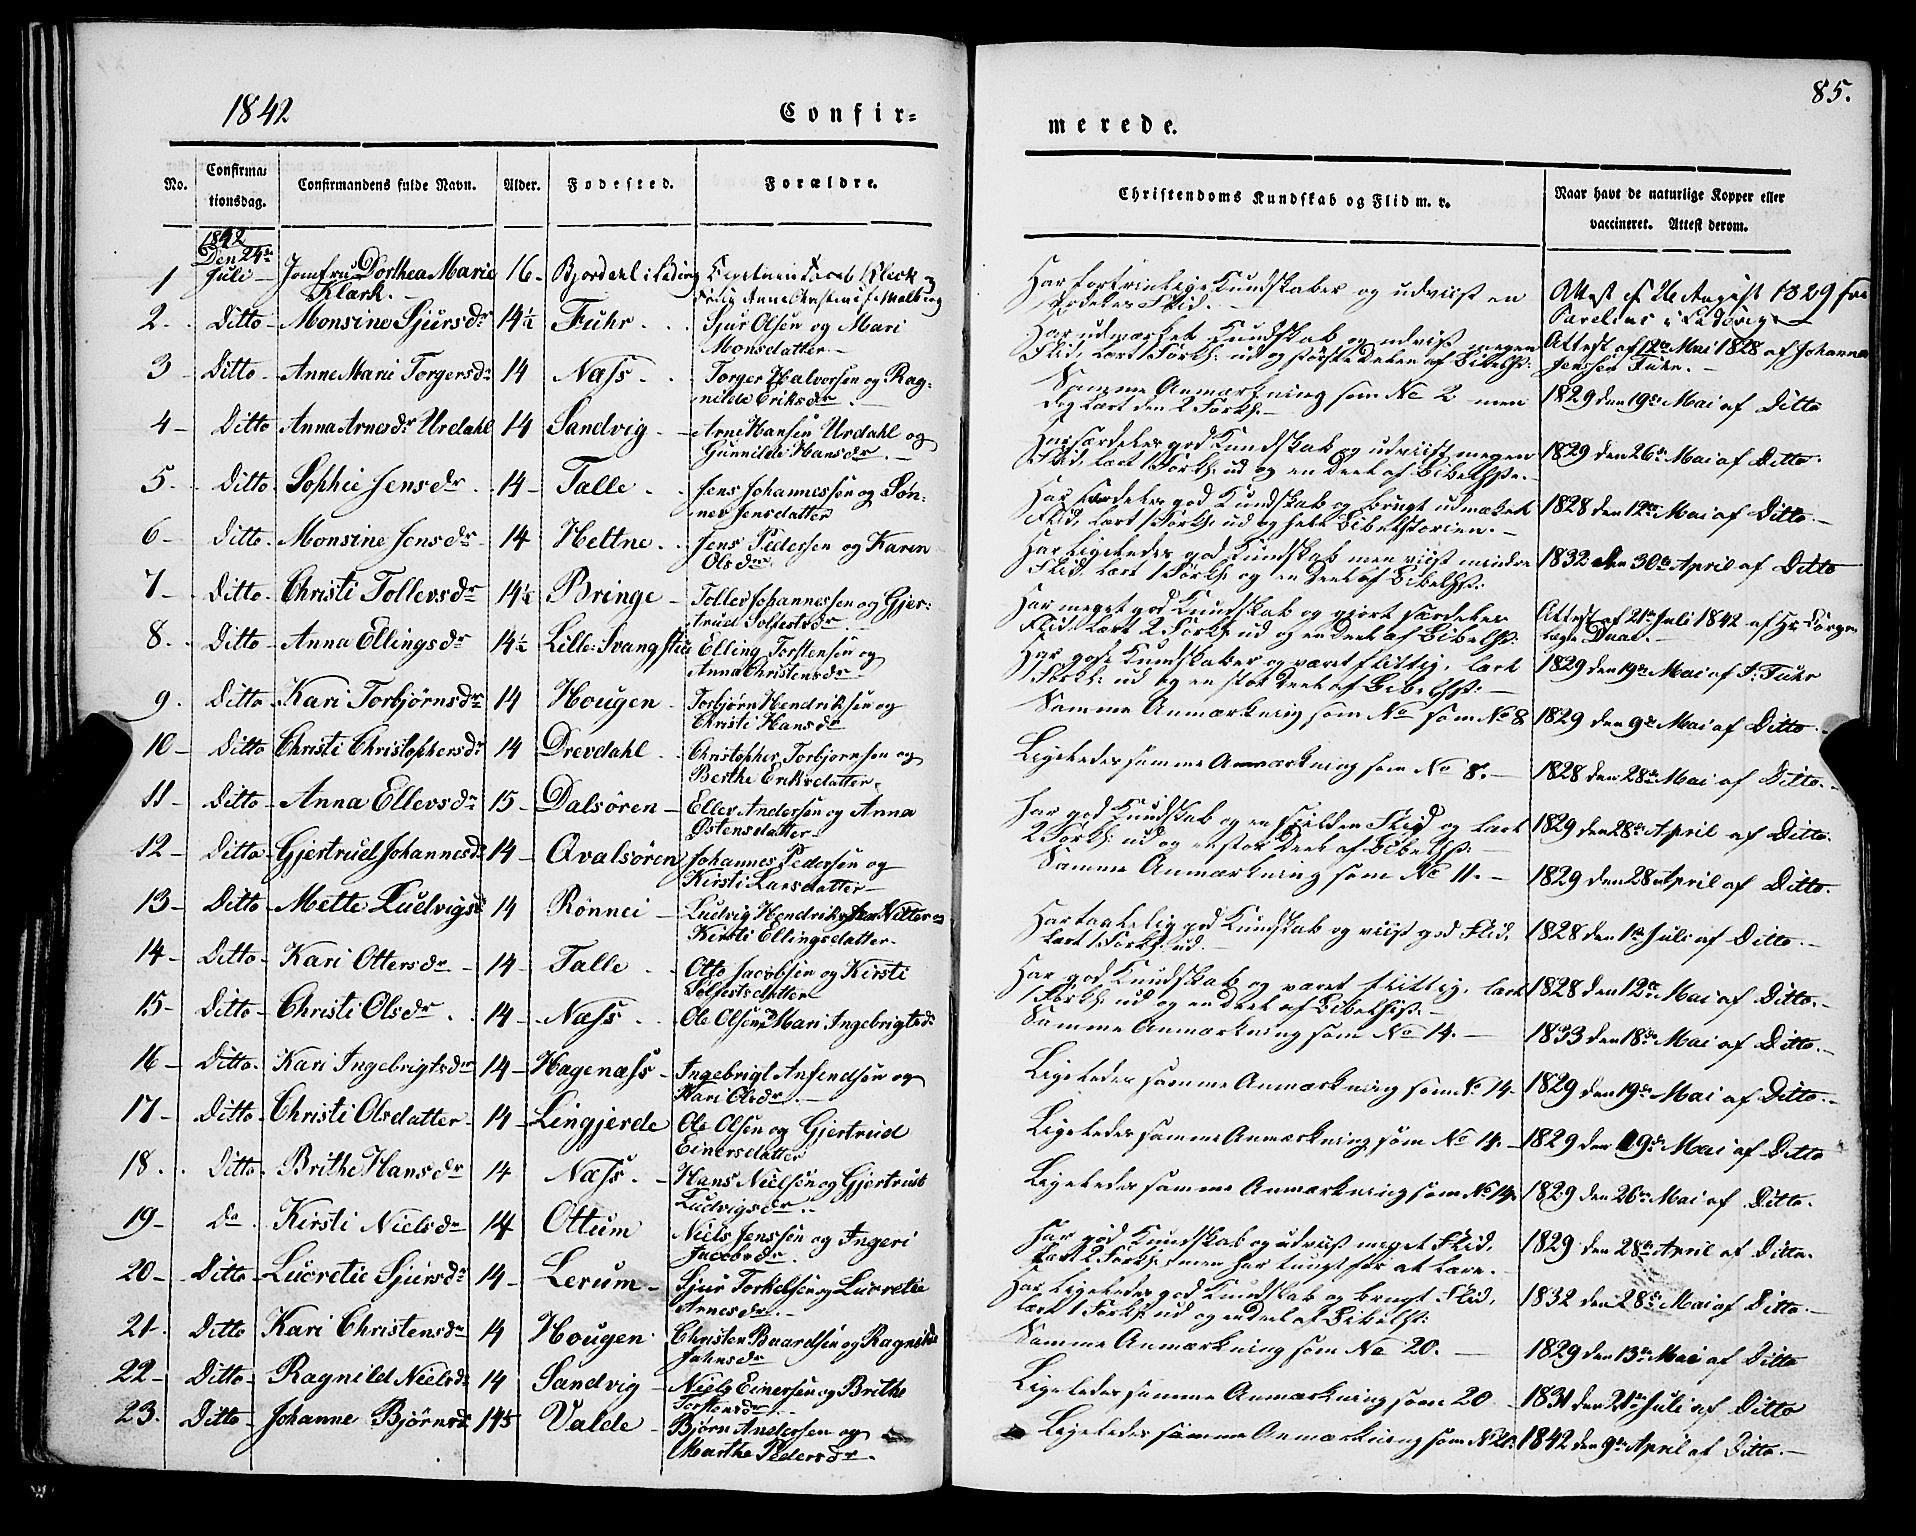 1842
Confir-
No.
Confirma-
tionsdag.
Confirmandens fulde Navn.
Alder.
Fødested.
Forældre.
1842
Den 24de
1 Juli - Jomfru Dorthea Marie 16 -
Klærk. -
2. Ditto - Monsine Sjursdr 14½ Fuhr. Sjur Olsen og Mari
Monsdatter -
3 Ditto - Anne Marie Torgersdr 14 Næss. Torger Halvorsen og Rag-
nilde Eriksdr.
4 - Ditto Anna Arnesdr Urdahl 14 Sandvig - Arne Hansen Urdahl og
Gunnilde Hansdr. -
5. Ditto - Sophie Jensdr. 14 - Talle. Jens Johannessen og Søn-
nev Jensdatter
6 - Ditto. Monsine Jensdr 14 Heltne. Jens Pedersen og Karen
Olsdr
7 - Ditto - Christi Tollevsdr 14½ Bringe - Tollev Johannessen og Gjer-
trud Solfestsdr
8. Ditto - Anna Ellingsdr 14½ Lille Elling Torstensen og
Anna Christensdr
9. Ditto Kari Torbjørnsdr 14 Hougen - Torbjørn Hendriksen og
Christi Hansdr
10 - Ditto Christi Christophersdr 14 Drevdahl. Christopher Torbjørnsen og
Berthe Eriksdatter -
11 - Ditto - Anna Ellevsdr 15 - Dalsøren - Ellev Andersen og Anna
Østensdatter -
12 - Ditto - Gjertrud Johannesdr 14 - Qvalsøren Johannes Pedersen og
Kirsti Larsdatter -
13 - Ditto - Mette Ludvigsdr 14 Rönnei - Ludvig Hendriksen
Kirsti Ellingsdatter -
14 - Ditto - Kari Ottersdr - 14 - Talle. Otto Jacobsen og Kirsti
Solfestsdatter
15 - Ditto - Christi Olsdr. 14 - Næss. Ole Olsen Mari Ingebrigtsdr
16 - Ditto. Kari Ingebrigtsdr 14 - Hagenæss - Ingebrigt Anfendsen og
Kari Olsdr. -
17 - Ditto - Christi Olsdatter - 14 - Lingjerde Ole Olsen og Gjertrud
Einersdatter
18. Ditto. Brithe Hansdr 14 Næss. - Hans Nielsen og Gjertrud
Ludvigsdr. -
19 - do. Kirsti Nielsdr 14 Ottum Niels Jenssen og Ingeri
Jacobsdr.
20 - Ditto - Lucretie Sjursdr 14 - Lerum - Sjur Torkelsen og Lucretie
Arnesdr. -
21 - Ditto Kari Christensdr 14 Hougen Christen Baardsen og Ragnilde
Johnsdr
22 - Ditto - Ragnild Nielsdr 14 Sandvig - Niels Einersen og Brithe
Torstensdr
23. Ditto - Johanne Bjørnsdr Valde - Bjørn Andersen og
Marthe Pedersdr. -
85.
merede.
Christendoms Kundskab og Flid m. v.
Naar havt de naturlige Kopper eller
vaccineret. Attest derom.
Har fortrinlige Kundskaber og udviist en
særdeles Flid. -
Attest af 26 August 1829
Har udmærket Kundskab og udviist megen
Flid, lært 1 Forkl: ud og største Delen af Bibelh:
Attest af 12te Mai 1828 af Johannes
Jenssen Fuhr. -
Samme Anmærkning som No 2 men
dog lært den 2 Forkl: -
1829 den 19de Mai af Ditto
Har særdeles god Kundskab og udviist megen
Flid, lært 1 Forkl: ud og en Deel af Bibelh: -
1829 den 26de Mai af Ditto.
Har særdeles god Kundskab og brugt udmærket
Flid, lært 1 Forkl: ud og hele Bibelhistorien. -
1828 den 12te Mai af Ditto. -
Har ligeledes god Kundskab men viist mindre
Flid, lært 1 Forkl: og en Deel af Bibelh:
1832 den 30te April af Ditto
Har meget god Kundskab og gjort særdeles
Flid, lært 2 Forkl: ud og en Deel af Bibelh:
Attest af 21de Juli 1842 af Hr
læge
Har gode Kundskaber og været flittig, lært
1 Forkl: ud og en stor Deel af Bibelh: -
1829 den 19de Mai af J: Fuhr
Samme Anmærkning som No som No 8
1829 den 9de Mai af Ditto. -
Ligeledes samme Anmærkning som No 8. -
1828 den 28de Mai af Ditto. -
Har god Kundskab og Flid og lært
2 Forkl: ud og en stor Deel af Bibelh: -
1829 den 28de April af Ditto.
Samme Anmærkning som No 11. -
1829 den 28 April af Ditto.
Har taalelig god Kundskab og viist god Flid,
lært 1 Forkl: ud. -
1828 den 1ste Juli af Ditto. -
Har god Kundskab og været flittig, lært
1 Forkl: ud og en Deel af Bibelh: -
1828 den 12te Mai af Ditto. -
Samme Anmærkning som No 14. -
1833 den 18de Mai af Ditto. -
Ligeledes samme Anmærkning som No 14 -
1829 den 19de Mai af Ditto. -
Ligeledes samme Anmærkning som No 14. -
1829 den 19de Mai af Ditto
Ligeledes samme Anmærkning som No 14.
1829 den 26de Mai af Ditto.
Har god Kundskab og udviist meget Flid,
lært 2 Forkl: men har tungt for at lære. -
1829 den 28de April af Ditto.
Har ligeledes god Kundskab og brugt Flid,
lært 1 Forkl: ud og en Deel af Bibelh:
1832 den 28de Mai af Ditto. -
Samme Anmærkning som No 20. -
1829 den 13de Mai af Ditto
Ligeledes samme Anmærkning som 20
1831 den 21de Juli af Ditto
Ligeledes samme Anmærkning som N 20.
1842 den 9de April af Ditto. -